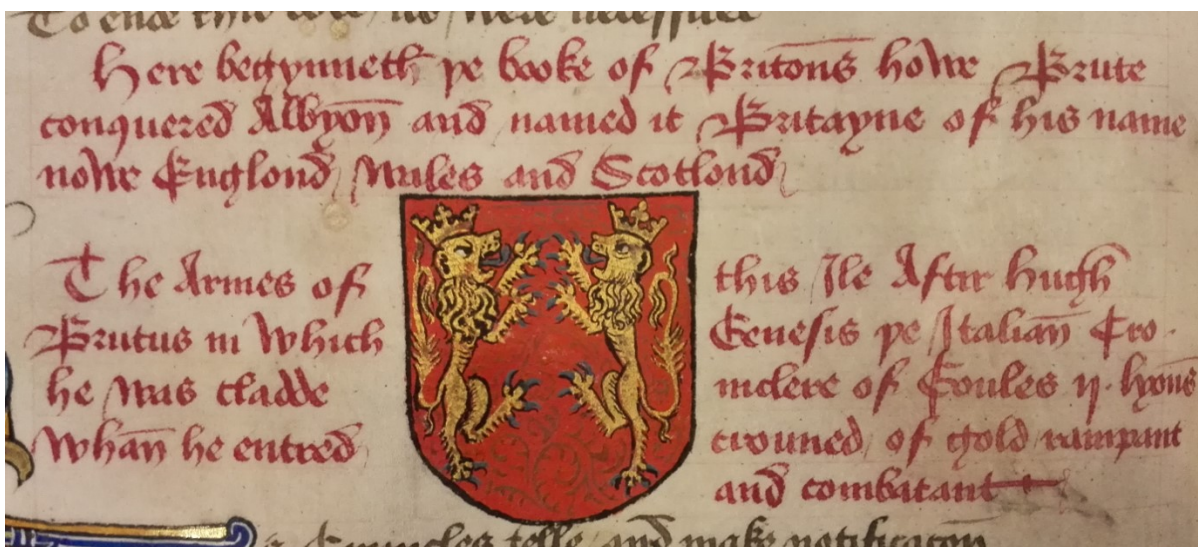 Here begynneth þe booke of Britons howe Brute
conquered Albyon and named it Britayne of his name
nowe Englond Wales and Scotlond
The Armes of
Brutus in which
he was cladde
whan he entred
this Ile Aftir Hugh
Genesis þe Italian Cro
niclere of Goules ij. lyons
crouned of gold rampant
and combatant
Cronicles telle and make notificacon